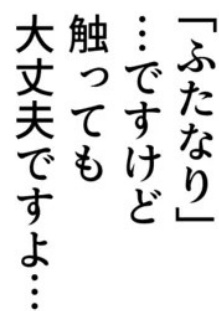 「ふたなり」
…ですけど
触っても
大丈夫ですよ…